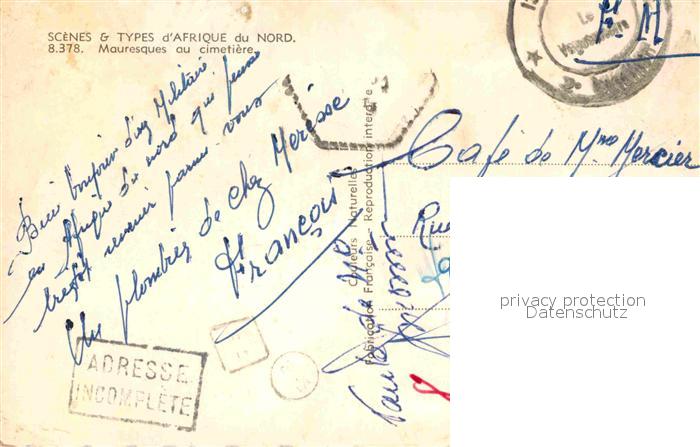 SCÈNES & TYPES d'AFRIQUE du NORD.
8.378. Mauresques au cimetière.
Bien bonjour d'un Militaire
en Afrique du nord qui pense
revenir parmi vous
Un plombier de chez Merisse
François
ADRESSE
INCOMPLÈTE
Couleurs Naturelles
Fabrication Française - Reproduction interdite
Le
Vaguemestre
F. M
Café de Mme Mercier
Rue
privacy protection
Datenschutz